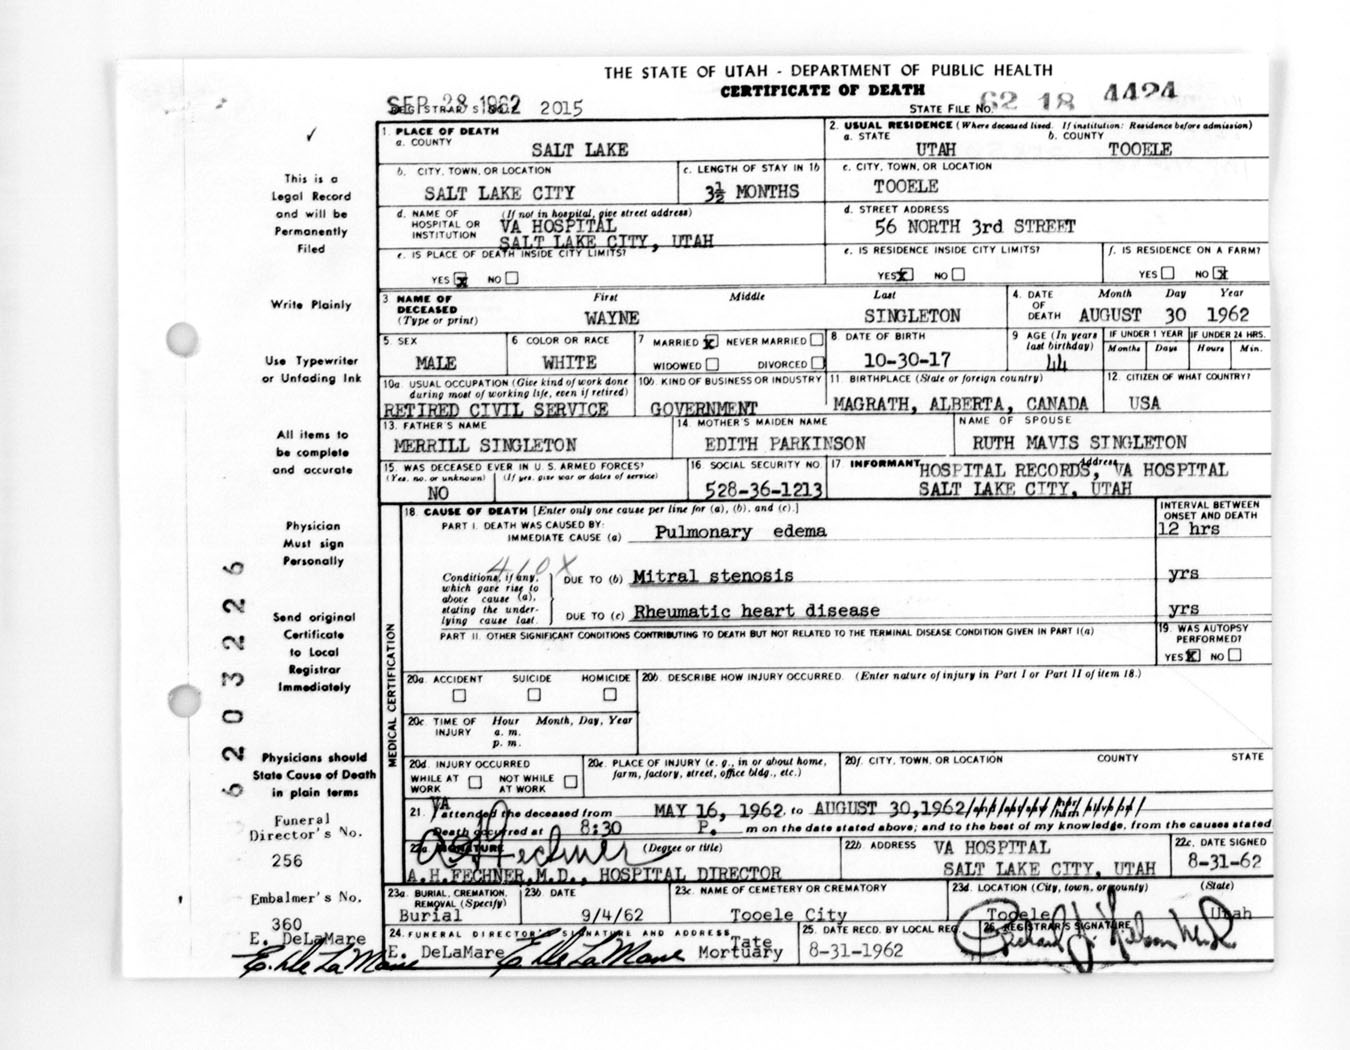 THE STATE OF UTAH - DEPARTMENT OF PUBLIC HEALTH
CERTIFICATE OF DEATH
SEP 28 1962 2015
REGISTRAR'S NO.
STATE FILE NO. 62 18 4424
This is a Legal Record and will be Permanently Filed
Write Plainly
Use Typewriter or Unfading Ink
All items to be complete and accurate
Physician Must sign Personally
Send original Certificate to Local Registrar Immediately
Physicians should State Cause of Death in plain terms
Funeral Director's No.
256
Embalmer's No.
360
E. DeLaMare
E. DeLaMare
6203226
1. PLACE OF DEATH
a. COUNTY
SALT LAKE
2. USUAL RESIDENCE (Where deceased lived. If institution: Residence before admission)
a. STATE b. COUNTY
UTAH TOOELE
b. CITY, TOWN, OR LOCATION
SALT LAKE CITY
c. LENGTH OF STAY IN 1b
3½ MONTHS
c. CITY, TOWN, OR LOCATION
TOOELE
d. NAME OF HOSPITAL OR INSTITUTION (If not in hospital, give street address)
VA HOSPITAL
SALT LAKE CITY, UTAH
d. STREET ADDRESS
56 NORTH 3rd STREET
e. IS PLACE OF DEATH INSIDE CITY LIMITS?
YES X NO
e. IS RESIDENCE INSIDE CITY LIMITS?
YES X NO
f. IS RESIDENCE ON A FARM?
YES NO X
3 NAME OF DECEASED (Type or print) First Middle Last
WAYNE SINGLETON
4. DATE OF DEATH Month Day Year
AUGUST 30 1962
5 SEX
MALE
6 COLOR OR RACE
WHITE
7 MARRIED X NEVER MARRIED
WIDOWED DIVORCED
8 DATE OF BIRTH
10-30-17
9 AGE (In years last birthday)
44
IF UNDER 1 YEAR IF UNDER 24 HRS.
Months Days Hours Min.
10a. USUAL OCCUPATION (Give kind of work done during most of working life, even if retired)
RETIRED CIVIL SERVICE
10b. KIND OF BUSINESS OR INDUSTRY
GOVERNMENT
11. BIRTHPLACE (State or foreign country)
MAGRATH, ALBERTA, CANADA
12. CITIZEN OF WHAT COUNTRY?
USA
13. FATHER'S NAME
MERRILL SINGLETON
14. MOTHER'S MAIDEN NAME
EDITH PARKINSON
NAME OF SPOUSE
RUTH MAVIS SINGLETON
15. WAS DECEASED EVER IN U. S. ARMED FORCES?
(Yes, no. or unknown) (If yes, give war or dates of service)
NO
16 SOCIAL SECURITY NO.
528-36-1213
17. INFORMANT Address
HOSPITAL RECORDS, VA HOSPITAL
SALT LAKE CITY, UTAH
MEDICAL CERTIFICATION
18. CAUSE OF DEATH [Enter only one cause per line for (a), (b), and (c).]
INTERVAL BETWEEN ONSET AND DEATH
PART I. DEATH WAS CAUSED BY:
IMMEDIATE CAUSE (a) Pulmonary edema 12 hrs
410X
Conditions, if any, which gave rise to above cause (a), stating the underlying cause last.
DUE TO (b) Mitral stenosis yrs
DUE TO (c) Rheumatic heart disease yrs
PART II. OTHER SIGNIFICANT CONDITIONS CONTRIBUTING TO DEATH BUT NOT RELATED TO THE TERMINAL DISEASE CONDITION GIVEN IN PART I(a)
19. WAS AUTOPSY PERFORMED?
YES X NO
20a. ACCIDENT SUICIDE HOMICIDE
20b. DESCRIBE HOW INJURY OCCURRED. (Enter nature of injury in Part I or Part II of item 18.)
20c. TIME OF INJURY Hour Month, Day, Year
a. m.
p. m.
20d. INJURY OCCURRED
WHILE AT WORK NOT WHILE AT WORK
20e. PLACE OF INJURY (e. g., in or about home, farm, factory, street, office bldg., etc.)
20f. CITY, TOWN, OR LOCATION COUNTY STATE
21. VA attended the deceased from MAY 16, 1962 to AUGUST 30, 1962
Death occurred at 8:30 P. m on the date stated above; and to the best of my knowledge, from the causes stated
22a. SIGNATURE (Degree or title)
A H Fechner
A.H.FECHNER, M.D., HOSPITAL DIRECTOR
22b. ADDRESS VA HOSPITAL
SALT LAKE CITY, UTAH
22c. DATE SIGNED
8-31-62
23a. BURIAL, CREMATION, REMOVAL (Specify)
Burial
23b. DATE
9/4/62
23c. NAME OF CEMETERY OR CREMATORY
Tooele City
23d. LOCATION (City, town, or county) (State)
Tooele Utah
24. FUNERAL DIRECTOR'S SIGNATURE AND ADDRESS
E. DeLaMare E. DeLaMare Tate Mortuary
25. DATE RECD. BY LOCAL REG.
8-31-1962
26. REGISTRAR'S SIGNATURE